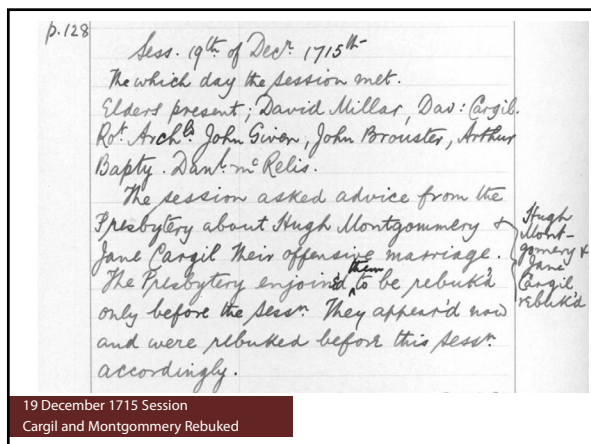 p.128
Sess. 19th of Decr. 1715th
The which day the session met.
Elders present; David Millar, Dav: Cargil.
Rot. Archbs. John Given, John Brouster, Arthur
Bapty. Danl. mc Relis.
The session asked advice from the
Presbytery about Hugh Montgommery &
Jane Cargil their offensive marriage.
The Presbytery enjoined them to be rebuk'd
only before the Sessn. They appear'd now
and were rebuked before this Sessn.
accordingly.
Hugh
Mont-
gomery &
Jane
Cargil
rebuk'd
19 December 1715 Session
Cargil and Montgommery Rebuked